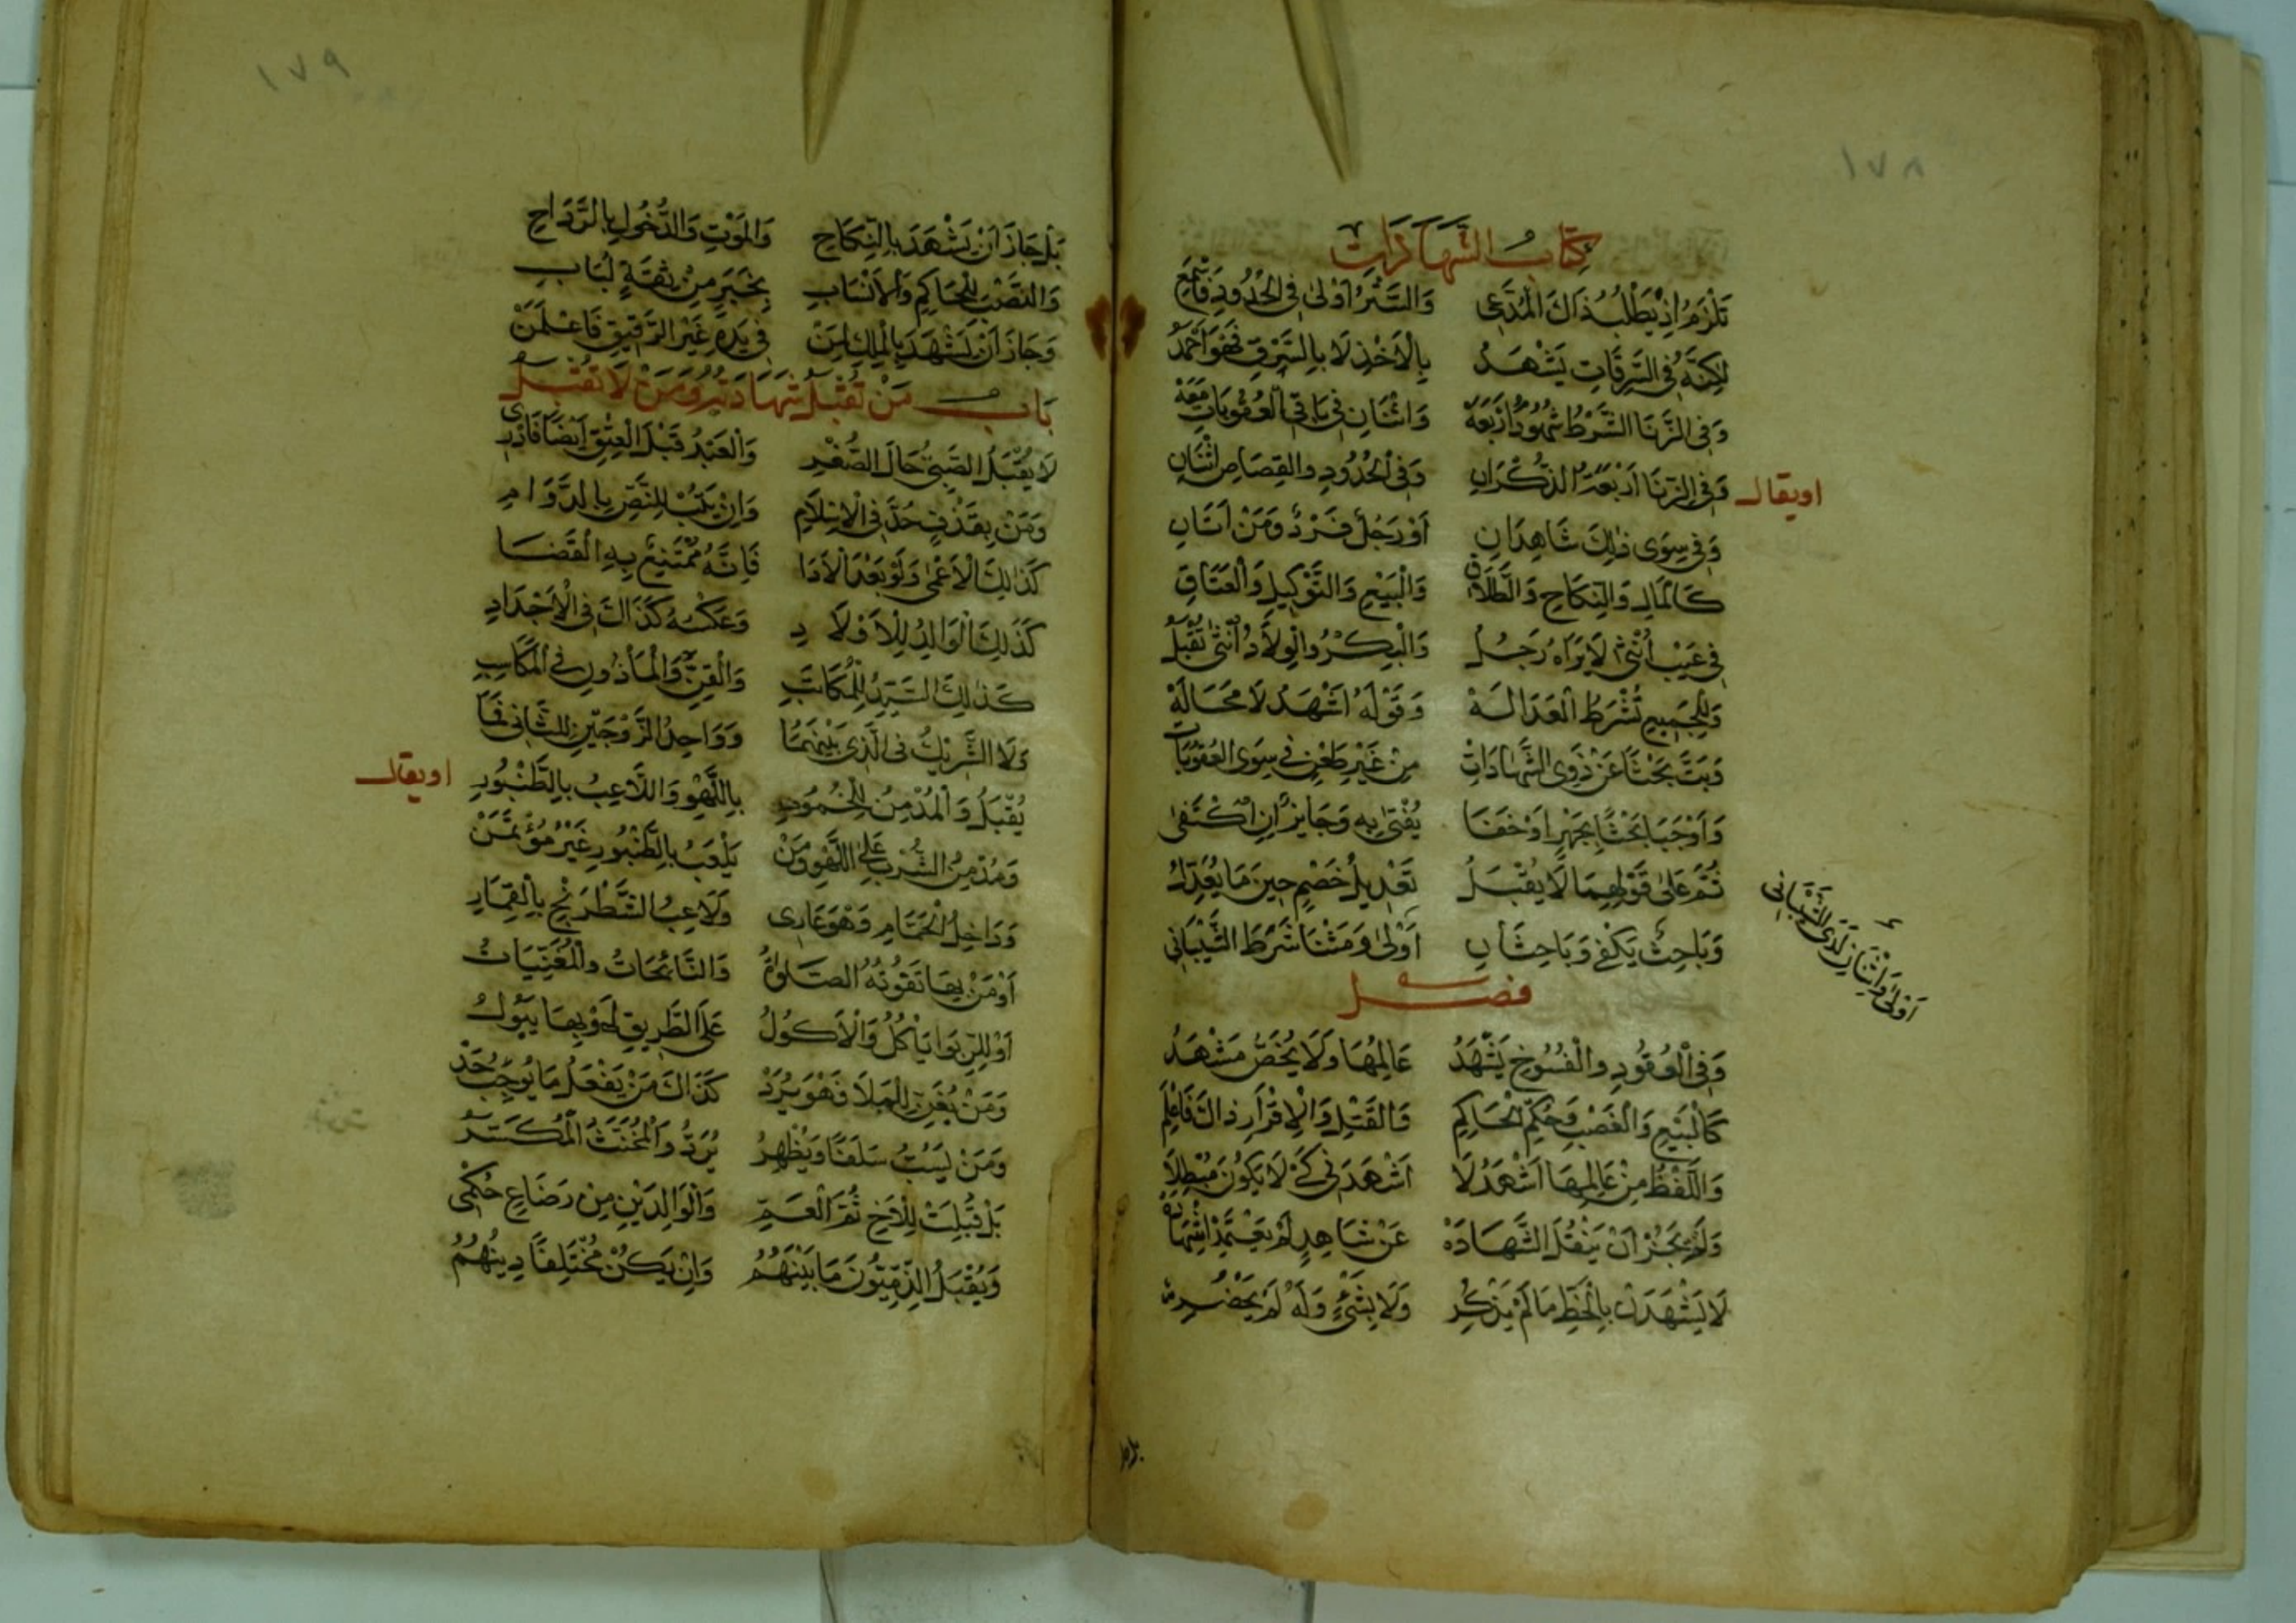 ١٧٨
كتاب الشهادات
تَلْزَمُ اِذْ يَطْلُبُ ذَاكَ الْمُدَّعِى وَالسَّتْرُ اَوْلٰى فِى الْحُدُودِ فَاسْمَعِ
لكِنَّهُ فِى السَّرِقَاتِ يَشْهَدُ بِالْاَخْذِ لَا بِالسَّرْقِ فَهْوَ اَحْمَدُ
وَفِى الزِّنَا الشَّرْطُ شُهُودٌ اَرْبَعَهْ وَاثْنَانِ فِى بَاقِى الْعُقُوبَاتِ مَعَهْ
اويقال وَفِى الزِّنَا اَرْبَعَةُ الذُّكْرَانِ وَفِى الْحُدُودِ والقِصَاصِ اثْنَانِ
وَفِى سِوَى ذٰلِكَ شَاهِدَانِ اَوْ رَجُلٌ فَرْدٌ وَمَنْ اثْنَانِ
كَالْمَالِ وَالنِّكَاحِ وَالطَّلَاقِ وَالْبَيْعِ وَالتَّوْكِيلِ وَالْعَتَاقِ
فِى عَيْبِ اُنْثٰى لَا يَرَاهُ رَجُلُ وَالْبِكْرُ والْوِلَادُ اُنْثٰى تُقْبَلُ
وَلِلْجَمِيعِ تُشْرَطُ الْعَدَالَهْ وَقَوْلُهُ اَشْهَدُ لَا مَحَالَهْ
وَبَتَّ بَحْثًا عَنْ ذَوِى الشَّهَادَاتْ مِنْ غَيْرِ طَعْنٍ فِى سِوَى الْعُقُوبَاتْ
وَاَوْجَبَا بَحْثًا بِجَهْرٍ اَوْ خَفَا يُفْتٰى بِهِ وَجَايِزٌ اِنِ اكْتَفٰى
ثُمَّ عَلٰى قَوْلِهِمَا لَا يُقْبَلُ تَعْدِيلُ خَصْمٍ حِينَ مَا يُعَدِّلُ
وَبَاحِثٌ يَكْفِى وَبَاحِثَانِ اَوْلٰى وَمَثْنَا شَرَطَ الشَّيْبَانِى
اَوْلٰى وَاثْنَانِ لَدَى الشَّيْبَانِى
فصل
وَفِى الْعُقُودِ والْفُسُوخِ يَشْهَدُ عَالِمُهَا وَلَا يُخَصُّ مَشْهَدُ
كَالْبَيْعِ وَالْغَصْبِ وَحُكْمِ الْحَاكِمِ وَالقَتْلِ وَالْاِقْرَارِ ذاكَ فَاعْلَمِ
وَاللَّفْظُ مِنْ عَالِمِهَا اَشْهَدُ لَا اَشْهَدَنِى كَىْ لَا يَكُونَ مُبْطِلَا
وَلَمْ يَجُزْ اَنْ يَنْقُلَ الشَّهَادَهْ عَنْ شَاهِدٍ لَمْ يَعْتَمِدْ اِشْهَادَهْ
لَا يَشْهَدَنْ بِالْخَطِّ مَا لَمْ يَذْكُرِ وَلَا بِشَىْءٍ وَلَهُ لَمْ يَحْضُرِ
بل جاز
١٧٩
بَلْ جَازَ اَنْ يَشْهَدَ بِالنِّكَاحِ وَالْمَوْتِ وَالدُّخُولِ بِالرَّدَاحِ
وَالنَّصْبِ لِلْحَاكِمِ وَالْاَنْسَابِ بِخَبَرٍ مِنْ ثِقَةٍ لُبَابِ
وَجَازَ اَنْ يَشْهَدَ بِالْمِلْكِ لِمَنْ فِى يَدِهِ غَيْرَ الرَّقِيقِ فَاعْلَمَنْ
بَاب مَنْ تُقْبَلُ شَهَادَتُهُ وَمَنْ لَا تُقْبَلُ
لَا يُقْبَلُ الصَّبِىُّ حَالَ الصُّغْرِ وَالْعَبْدُ قَبْلَ الْعِتْقِ اَيْضًا فَادْرِ
وَمَنْ بِقَذْفٍ حُدَّ فِى الْاِسْلَامِ وَاِنْ يَتُبْ لِلنَّصِّ بِالدَّوَامِ
كَذٰلِكَ الْاَعْمٰى وَلَوْ بَعْدَ الْاَدَا فَاِنَّهُ مُمْتَنِعٌ بِهِ الْقَضَا
كَذٰلِكَ الْوَالِدُ لِلْاَوْلَادِ وَعَكْسُهُ كَذَاكَ فِى الْاَجْدَادِ
كَذٰلِكَ السَّيِّدُ لِلْمُكَاتَبِ وَالْقِنِّ وَالْمَأْذُونِ فِى الْمَكَاسِبِ
وَلَا الشَّرِيْكُ فِى الَّذِى بَيْنَهُمَا وَوَاحِدُ الزَّوْجَيْنِ لِلثَّانِى فَمَا
يُقْبَلُ وَالْمُدْمِنُ لِلْخُمُورِ بِاللَّهْوِ وَاللَّاعِبُ بِالطُّنْبُورِ
اويقال وَمُدْمِنُ الشُّرْبِ عَلَى اللَّهْوِ وَمَنْ يَلْعَبُ بِالطُّنْبُورِ غَيْرُ مُؤْتَمَنْ
وَدَاخِلُ الْحَمَّامِ وَهْوَ عَارِى وَلَاعِبُ الشَّطْرَنْجِ بِالْقِمَارِ
اَوْ مَنْ بِهَا تَفُوتُهُ الصَّلوَاةُ وَالنَّائِحَاتُ والْمُغَنِّيَاتُ
اَوْ لِلرِّبَوا يَأْكُلُ وَالْاَكُولُ عَلَى الطَّرِيقِ اَوْ بِهَا يَبُولُ
وَمَنْ يُغَنِّ لِلْمَلَا فَهْوَ يُرَدْ كَذَاكَ مَنْ يَفْعَلُ مَا يُوجِبُ حَدْ
وَمَنْ يَسُبُّ سَلَفًا وَيُظْهِرُ يُرَدُّ وَالْمُخَنَّثُ الْمُكَسَّرُ
بَلْ قُبِلَتْ لِلْاَخِ ثُمَّ الْعَمِّ وَالْوَالِدَيْنِ مِنْ رَضَاعٍ حُكْمِى
وَيُقْبَلُ الذِّمِّيُّونَ مَا بَيْنَهُمُ وَاِنْ يَكُنْ مُخْتَلِفًا دِينُهُمُ